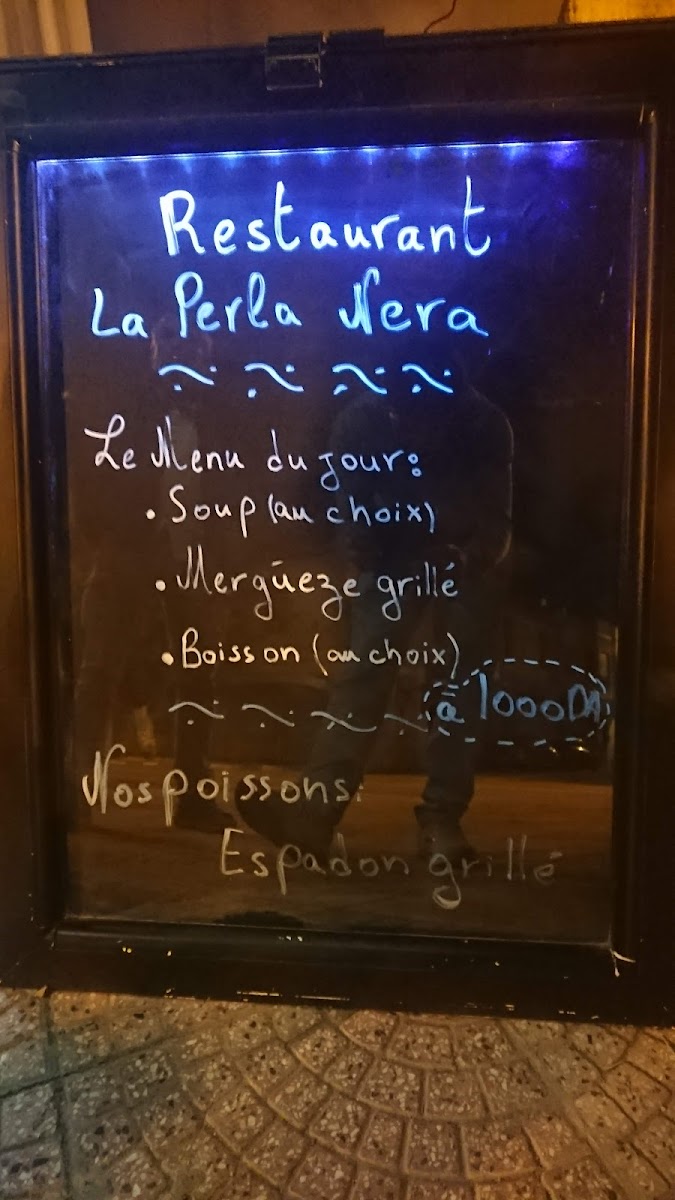 Restaurant
La Perla Nera
Le Menu du jour:
• Soup (au choix)
• Mergúeze grillé
• Boisson (au choix)
à 1000DA
Nos poissons:
Espadon grillé